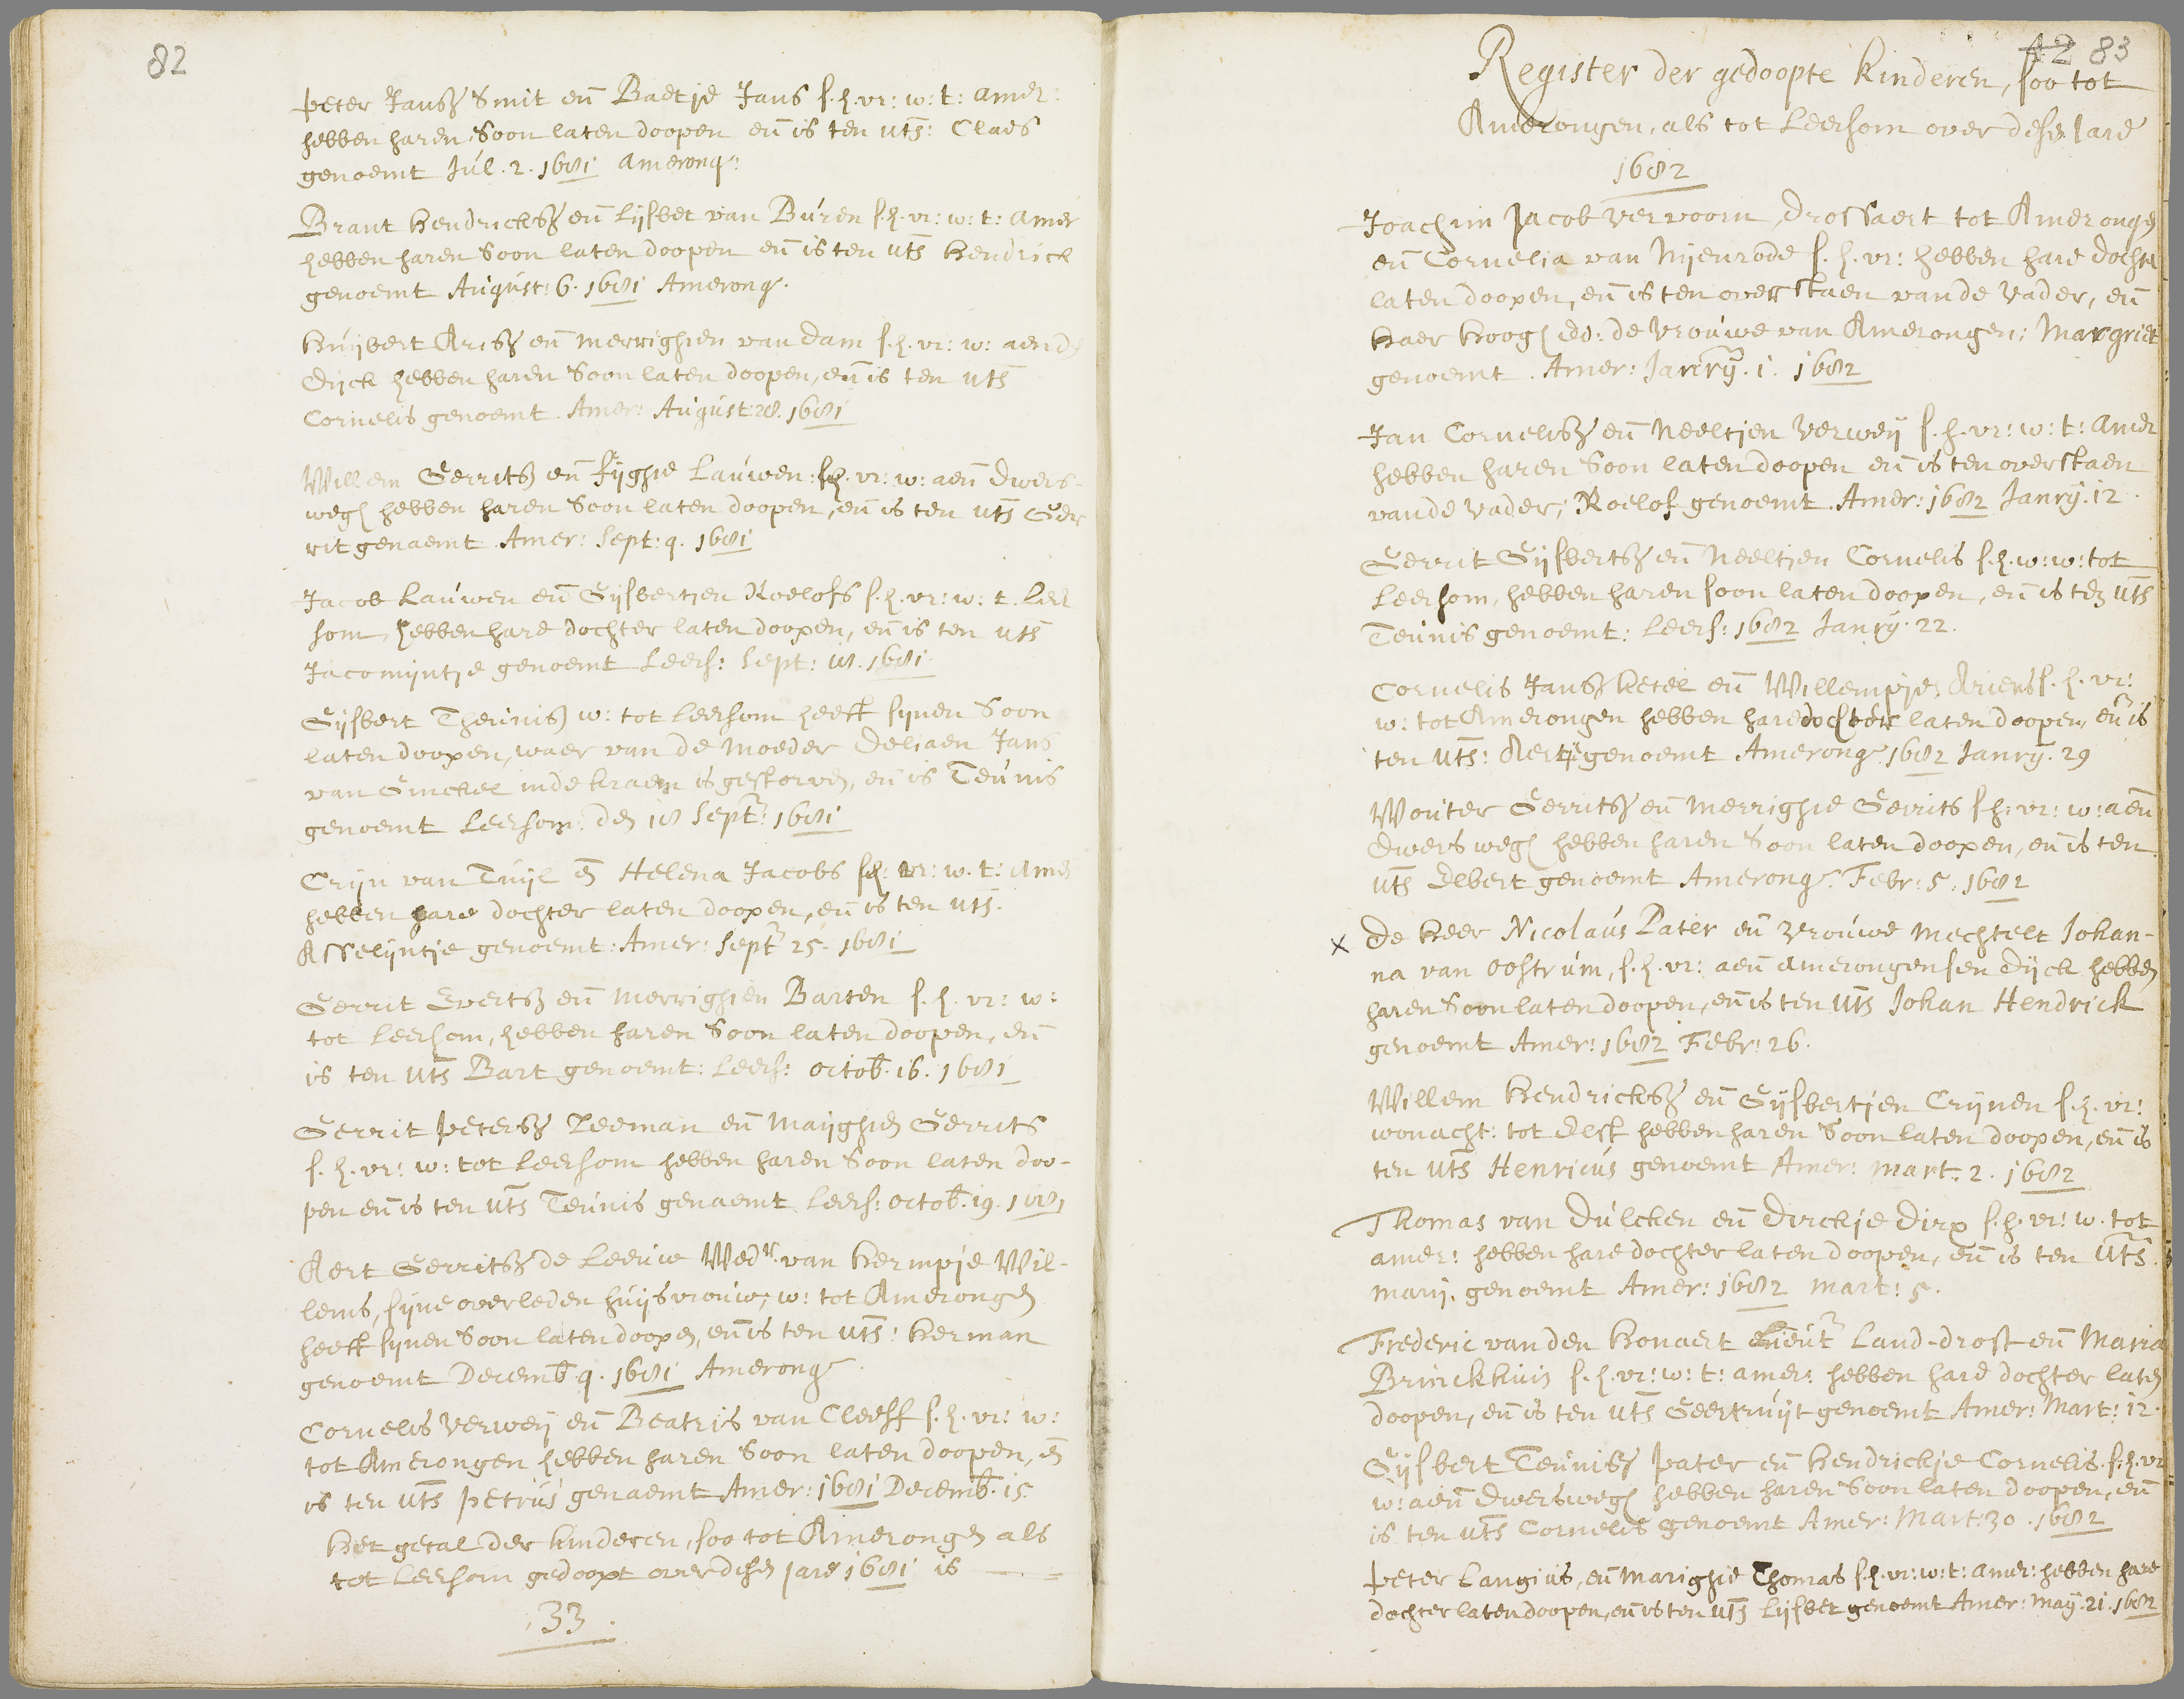 82
Peter Jansz Smit en̄ Baetje Jans s. h. vr: w: t: Amer:
hebben haren Soon laten doopen en̄ is ten uts̄: Claes
genoemt Júl. 2. 1681 Amerong:
Brant Hendricksz en̄ Lijsbet van Búren s. h. vr: w: t: Amer
hebben haren Soon laten doopen en̄ is ten uts̄ Hendrick
genoemt Augúst: 6. 1681 Amerong.
Huijbert Arisz en̄ Merrighien van Dam s. h. vr: w: aen d
Dijck hebben haren Soon laten doopen, en̄ is ten uts̄
Cornelis genoemt Amer: Augúst 28. 1681
Willem Gerritsz en̄ Fijghie Laúwen: s. h. vr: w: aen̄ Dwers-
wegh hebben haren Soon laten doopen, en̄ is ten uts̄ Ger
rit genaemt Amer: Sept: 4. 1681
Jacob Laúwen en̄ Gijsbertjen Roelofs s. h. vr: w: t. Leer
som, hebben hare dochter laten doopen, en̄ is ten uts̄
Jacomijntje genoemt Leers: Sept: 18. 1681.
Gijsbert Theúnisz w: tot Leersom heeft sijnen Soon
laten doopen, waer van de moeder Deliaen Jans
van Ginckel in de kraem is gestorven, en̄ is Teúnis
genoemt Leersom: den 18 Septr: 1681
Crijn van Tuijl en̄ Helena Jacobs s. h: vr: w. t: Amer
hebben hare dochter laten doopen, en̄ is ten uts̄.
Asselijntje genoemt: Amer: Septr 25. 1681
Gerrit Evertsz en̄ Merrighien Barten s. h. vr: w:
tot Leersom, hebben haren Soon laten doopen, en̄
is ten uts̄ Bart genoemt: Leers: Octob. 16. 1681
Gerrit Petersz Leeman en̄ Maijghien Gerrits
s. h. vr: w: tot Leersom hebben haren Soon laten doo-
pen en̄ is ten uts̄ Teúnis genaemt Leers: Octob. 19. 1681
Aert Gerritsz de Leeúw Wedr. van Hermpje Wil-
lems, sijne overleden húijsvroúw, w: tot Amerongen
heeft sijnen Soon laten doopen, en̄ is ten uts̄: Herman
genoemt Decemb. 4. 1681 Amerong.
Cornelis Verweij en̄ Beatris van Cleeff s. h. vr: w:
tot Amerongen hebben haren Soon laten doopen, en̄
is ten uts̄ Petrús genaemt Amer: 1681 Decemb. 15
Het getal der kinderen, soo tot Amerongen als
tot Leersom gedoopt over desen jare 1681 is
33.
42 83
Register der gedoopte kinderen, soo tot
Amerongen, als tot Leersom over desen Jare
1682
Joachim Jacob Vervoorn, Drossaert tot Amerongen
en̄ Cornelia van Nijenrode s. h. vr: hebben hare dochter
laten doopen, en̄ is ten overstaen van de Vader, en̄
Haer Hoogh ed: de Vroúwe van Amerongen: Margriet
genoemt. Amer: Janrij. 1. 1682
Jan Cornelisz en̄ Neeltjen Verweij s. h. vr: w: t: Amer
hebben haren Soon laten doopen en̄ is ten overstaen
van de Vader, Roelof genoemt. Amer: 1682 Janrij. 12.
Gerrit Gijsbertsz en̄ Neeltjen Cornelis s. h. w: w: tot
Leersom, hebben haren soon laten doopen, en̄ is ten uts̄
Teúnis genoemt: Leers: 1682 Janrij. 22.
Cornelis Jansz Ketel en̄ Willempje Ariens s. h. vr:
w: tot Amerongen hebben hare dochter laten doopen, en̄ is
ten uts̄: Aertje genoemt Amerong. 1682 Janrij. 29
Woúter Gerritsz en̄ Merrighie Gerrits s. h: vr: w: aen̄
Dwers wegh hebben haren Soon laten doopen, en̄ is ten
uts̄ Elbert genoemt Amerong. Febr: 5. 1682
x De Heer Nicolaús Pater en̄ Vroúwe Mechtelt Johan-
na van Oostrúm, s. h. vr: aen̄ Amerongensen Dijck hebben
haren Soon laten doopen, en̄ is ten uts̄ Johan Hendrick
genoemt Amer: 1682 Febr: 26.
Willem Hendricksz en̄ Gijsbertjen Crijnen s. h. vr:
wonacht: tot Elst hebben haren Soon laten doopen, en̄ is
ten uts̄ Henricús genoemt Amer: Mart: 2. 1682
Thomas van Dúlcken en̄ Dirckje Dirx s. h. vr: w. tot
Amer: hebben hare dochter laten doopen, en̄ is ten uts̄.
Marij. genoemt Amer: 1682 Mart: 5.
Frederic van den Honaert Land-drost en̄ Maria
Brinckhúis s. h. vr: w: t: Amer: hebben hare dochter laten
doopen, en̄ is ten uts̄ Geertrúijt genoemt Amer: Mart: 12.
Gijsbert Teúnisz Pater en̄ Hendrickje Cornelis. s. h. vr
w: aen̄ Dwerswegh hebben haren Soon laten doopen, en̄
is ten uts̄ Cornelis genoemt Amer: Mart: 30. 1682
Peter Langiús, en̄ Marighie Thomas s. h. vr: w: t: Amer: hebben hare
dochter laten doopen, en̄ is ten uts̄ Lijsbet genoemt Amer: Maij. 21. 1682